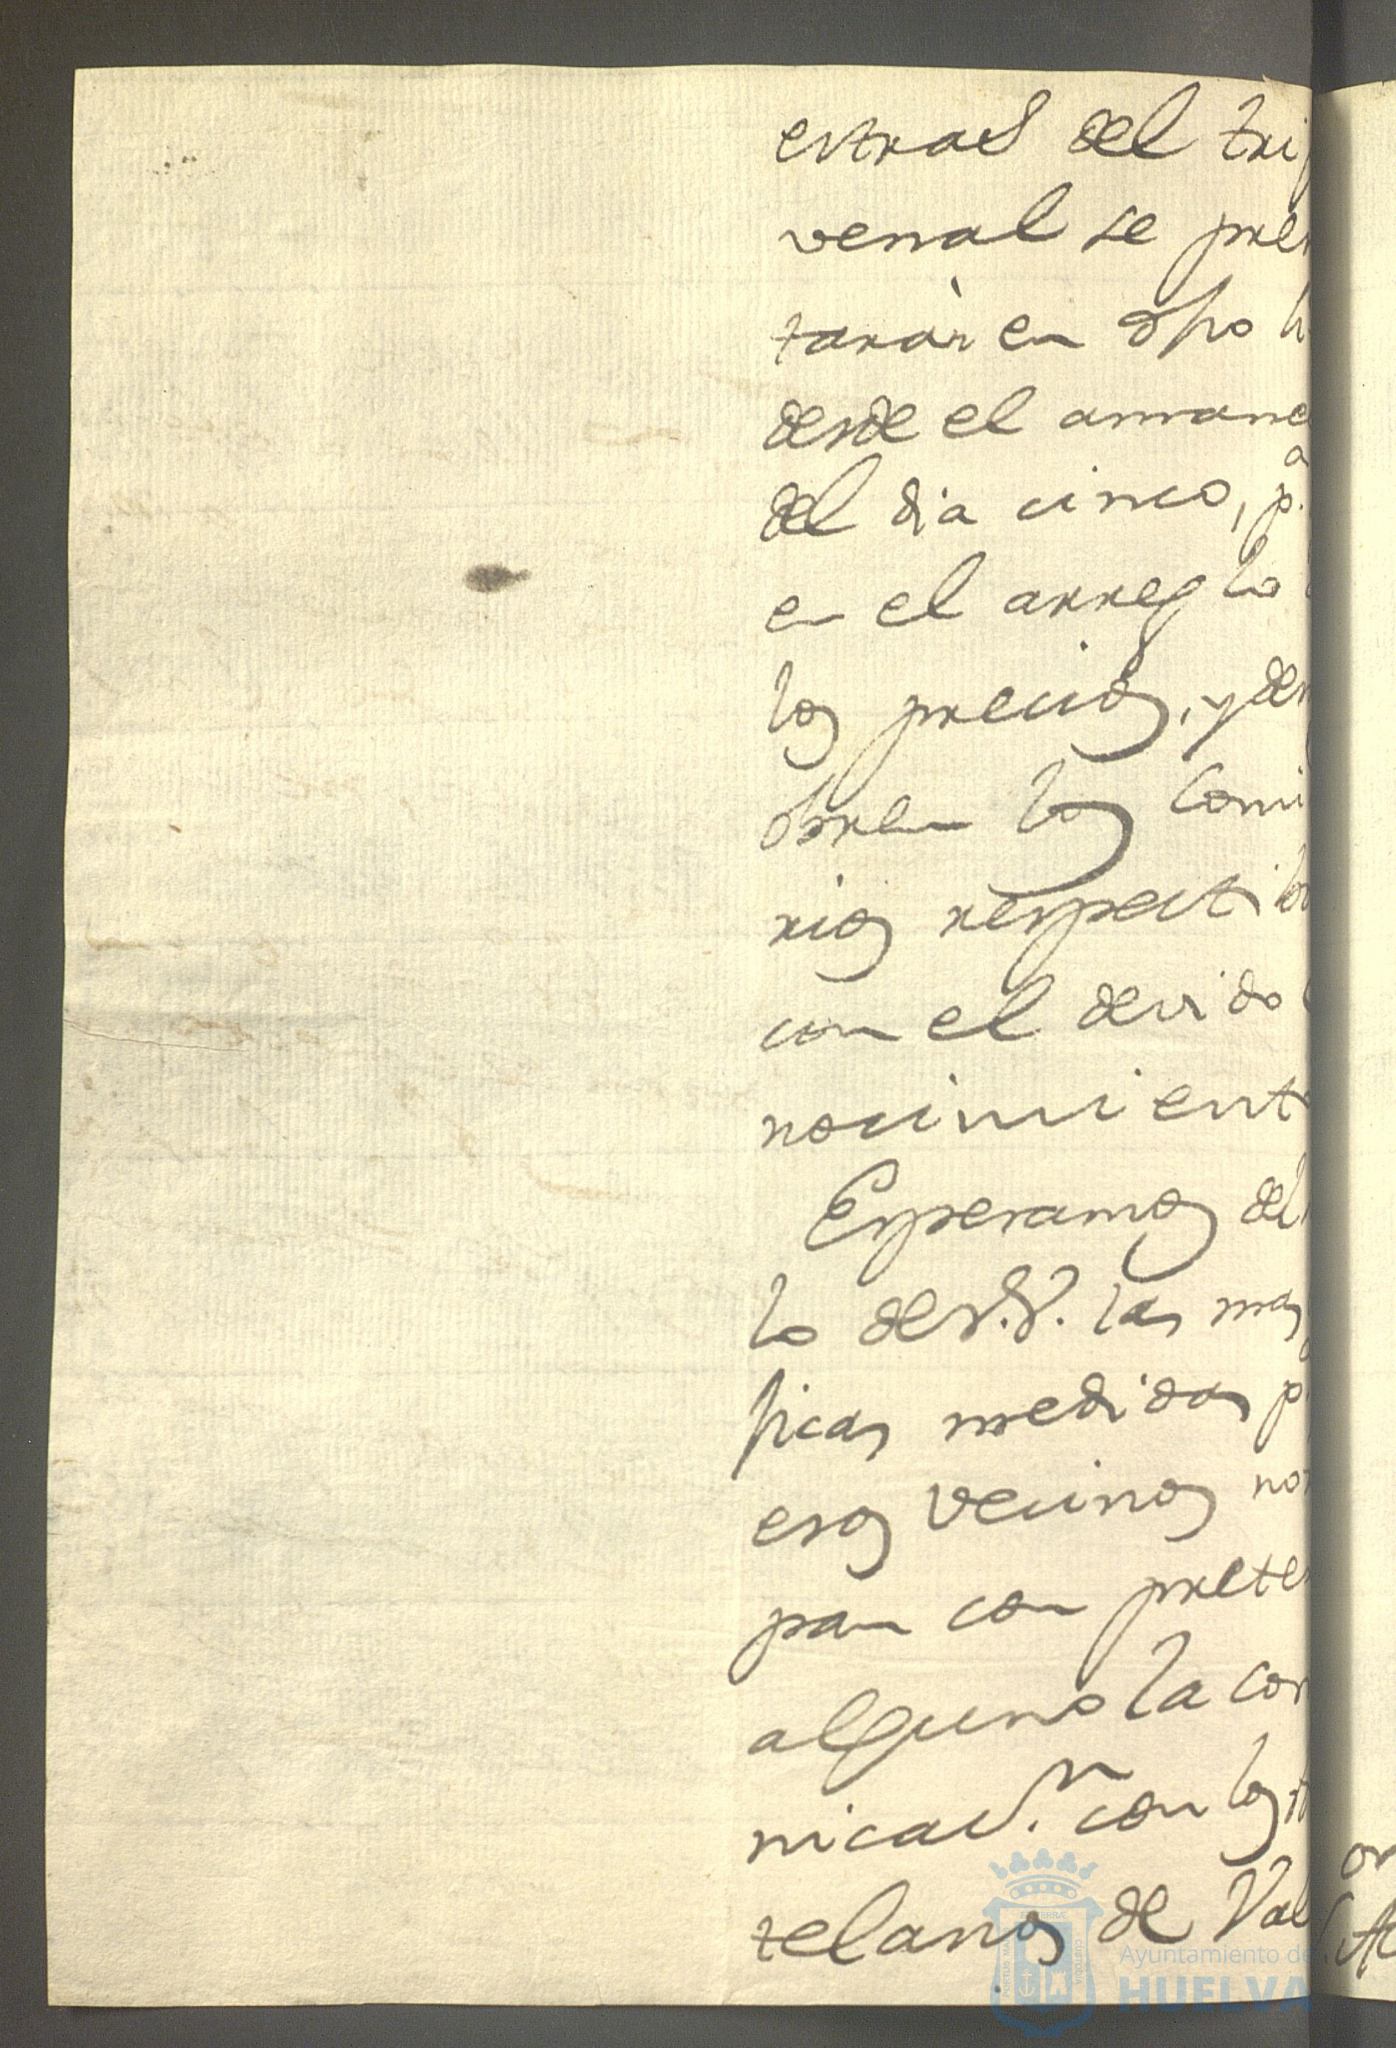 estras del tri
venal se pre
tarán en dho
desde el amane
del dia cinco, p.a
en el arreglo
los precios, y de
obren los Comi
rios respectibo
con el devido
nocimient
Esperamos del
lo de V.S. las mas
ficas medidas p
esos Vecinos no
pan con prete
alguno la co
nicac.n con los
telanos de Val
Ayuntamiento de
HUELVA